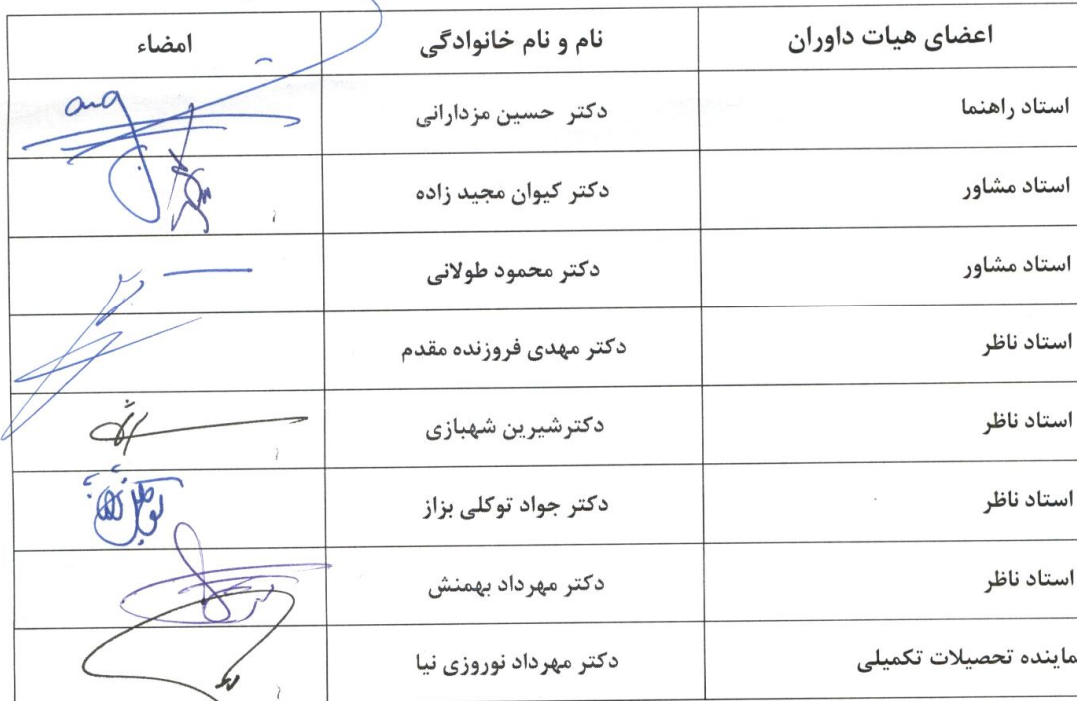 اعضای هیات داوران نام و نام خانوادگی امضاء
استاد راهنما دکتر حسین مزدارانی
استاد مشاور دکتر کیوان مجید زاده
استاد مشاور دکتر محمود طولانی
استاد ناظر دکتر مهدی فروزنده مقدم
استاد ناظر دکترشیرین شهبازی
استاد ناظر دکتر جواد توکلی بزاز
استاد ناظر دکتر مهرداد بهمنش
ماینده تحصیلات تکمیلی دکتر مهرداد نوروزی نیا